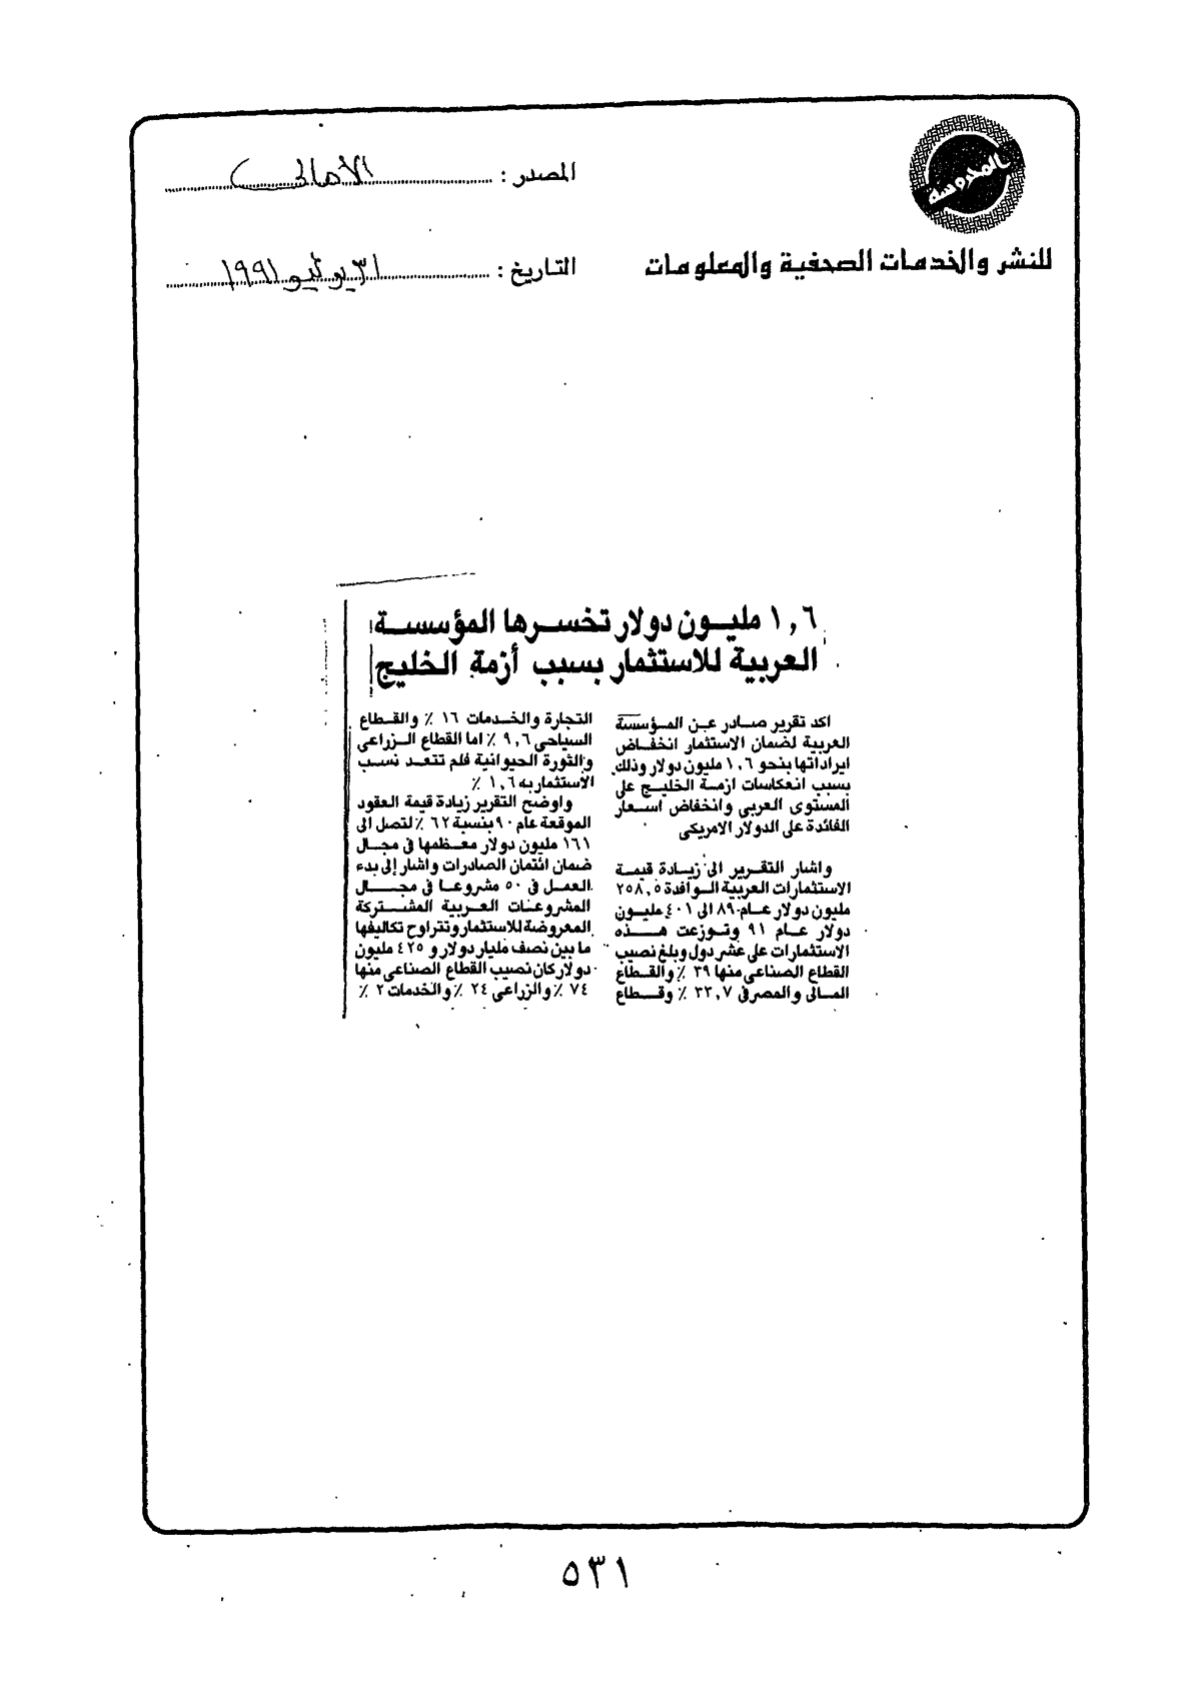 المحروسة
للنشر والخدمات الصحفية والمعلومات
المصدر : الأهالى
التاريخ : ٣١ يوليو ١٩٩١
١,٦ مليون دولار تخسرها المؤسسة
العربية للاستثمار بسبب أزمة الخليج
اكد تقرير صادر عن المؤسسة
العربية لضمان الاستثمار انخفاض
ايراداتها بنحو ١,٦ مليون دولار وذلك
بسبب انعكاسات ازمة الخليج على
المستوى العربى وانخفاض اسعار
الفائدة على الدولار الامريكى
واشار التقرير الى زيادة قيمة
الاستثمارات العربية الوافدة ٢٥٨,٥
مليون دولار عام ٨٩ الى ٤٠١ مليون
دولار عام ٩١ وتوزعت هذه
الاستثمارات على عشر دول وبلغ نصيب
القطاع الصناعى منها ٣٩ ٪ والقطاع
المالى والمصرفى ٣٣,٧ ٪ وقطاع
التجارة والخدمات ١٦ ٪ والقطاع
السياحى ٩,٦ ٪ اما القطاع الزراعى
والثورة الحيوانية فلم تتعد نسب
الاستثمار به ١,٦ ٪
واوضح التقرير زيادة قيمة العقود
الموقعة عام ٩٠ بنسبة ٦٢ ٪ لتصل الى
١٦١ مليون دولار معظمها فى مجال
ضمان ائتمان الصادرات واشار إلى بدء
العمل فى ٥٠ مشروعا فى مجال
المشروعات العربية المشتركة
المعروضة للاستثمار وتتراوح تكاليفها
ما بين نصف مليار دولار و ٤٢٥ مليون
دولار كان نصيب القطاع الصناعى منها
٧٤ ٪ والزراعى ٢٤ ٪ والخدمات ٢ ٪
٥٣١